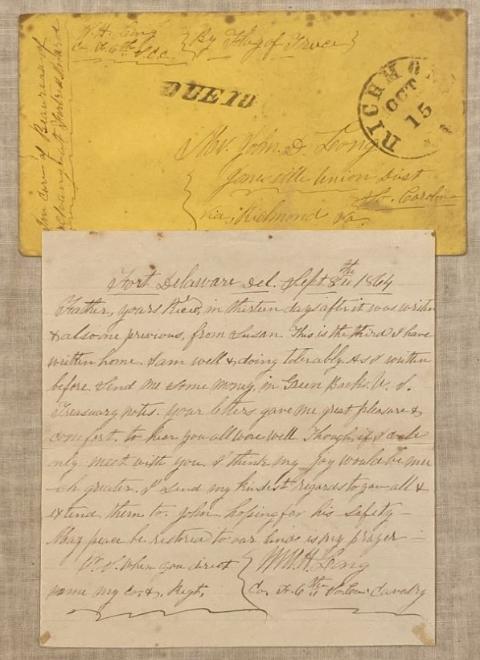 W. H. Long
Co. A 6th S.C.C.
{By Flag of Truce}
In care of Bureau of
Exchange at
DUE 10
RICHMOND
OCT
15
Mr. John D. Long
Jonesville Union Dist
So. Carolina
via, Richmond Va.
Fort Delaware Del. Sept 8th 1864
Father, yours Rec'd, in thirteen days after it was written
& also one previous, from Susan. This is the third I have
written home. I am well & doing tolerably & so I written
before. Send me some money, in Green Back. U. S.
Treasuary notes. your letters gave me great pleasure &
comfort. to hear you all were well. Though, if I could
only meet with you. I think my Joy would be mu-
ch greater. I send my kindest regards to you all &
extend them to John hoping for his safety –
May peace be restored to our lands is my prayer –
P. S. When you direct
name my co. & Regt.
Wm. H. Long
Co. A. 6th Cavalry